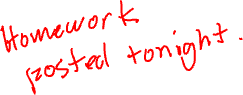 Homework
posted tonight.